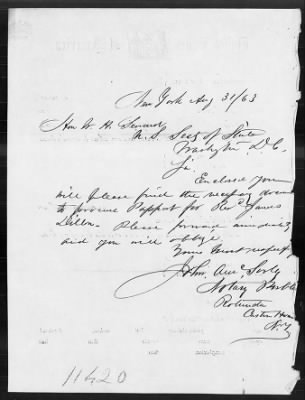 New York Aug 31/63
Hon W. H. Seward
U. S. Secy of State
Washington D. C.
Sir
Enclosed you
will please find the necessary docum
to procure Passport for Revd James
Dillon. Please forward immediately
and you will oblige
Yours most respectfy
John
Notary Public
Rotunda
Custom House
N.Y.
11420